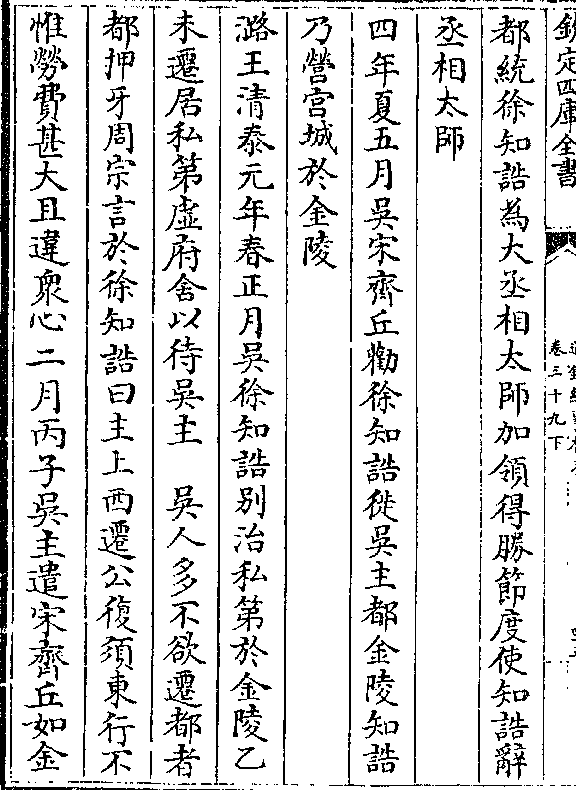 欽定四庫全書
卷三十九下
都統徐知誥為大丞相太師加領得勝節度使知誥辭
丞相太師
四年夏五月吳宋齊丘勸徐知誥徙吳主都金陵知誥
乃營宮城於金陵
潞王清泰元年春正月吳徐知誥別治私第於金陵乙
未遷居私第虛府舍以待吳主　吳人多不欲遷都者
都押牙周宗言於徐知誥曰主上西遷公復須東行不
惟勞費甚大且違衆心二月丙子吳主遣宋齊丘如金